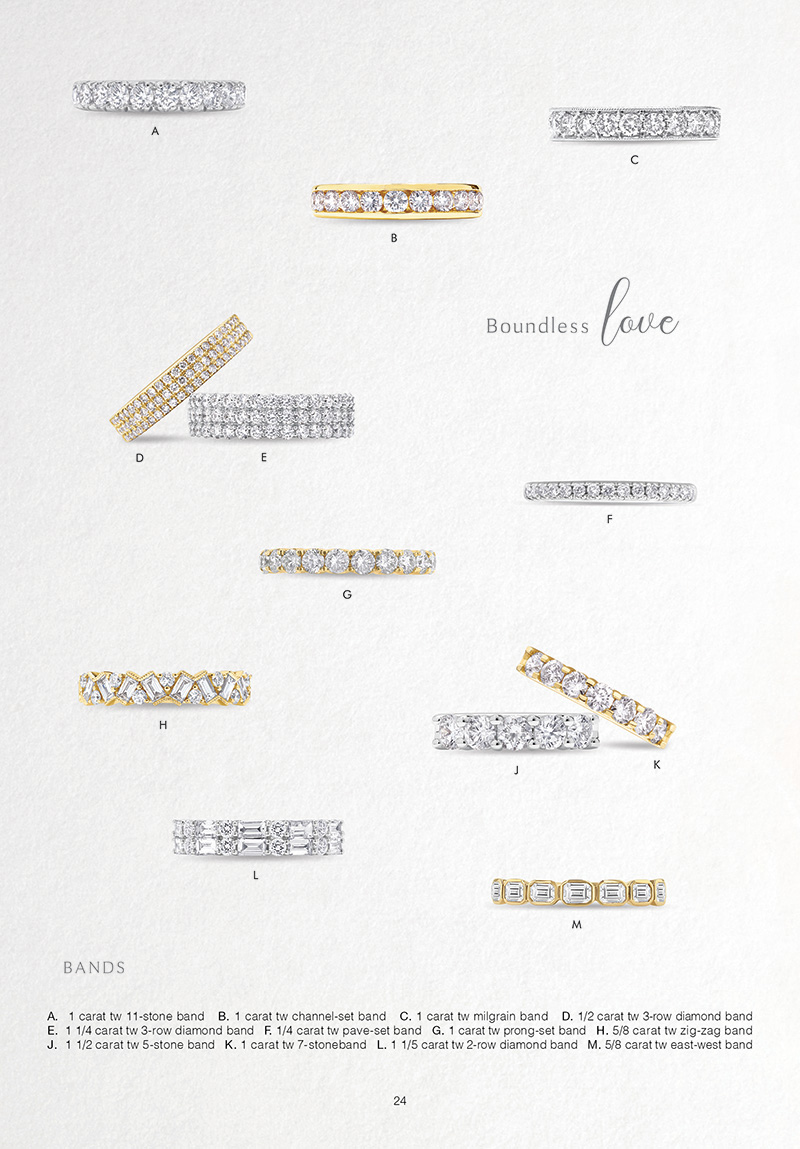 A
C
B
Boundless love
D
E
F
G
H
J
K
L
M
BANDS
A. 1 carat tw 11-stone band B. 1 carat tw channel-set band C. 1 carat tw milgrain band D. 1/2 carat tw 3-row diamond band
E. 1 1/4 carat tw 3-row diamond band F. 1/4 carat tw pave-set band G. 1 carat tw prong-set band H. 5/8 carat tw zig-zag band
J. 1 1/2 carat tw 5-stone band K. 1 carat tw 7-stoneband L. 1 1/5 carat tw 2-row diamond band M. 5/8 carat tw east-west band
24